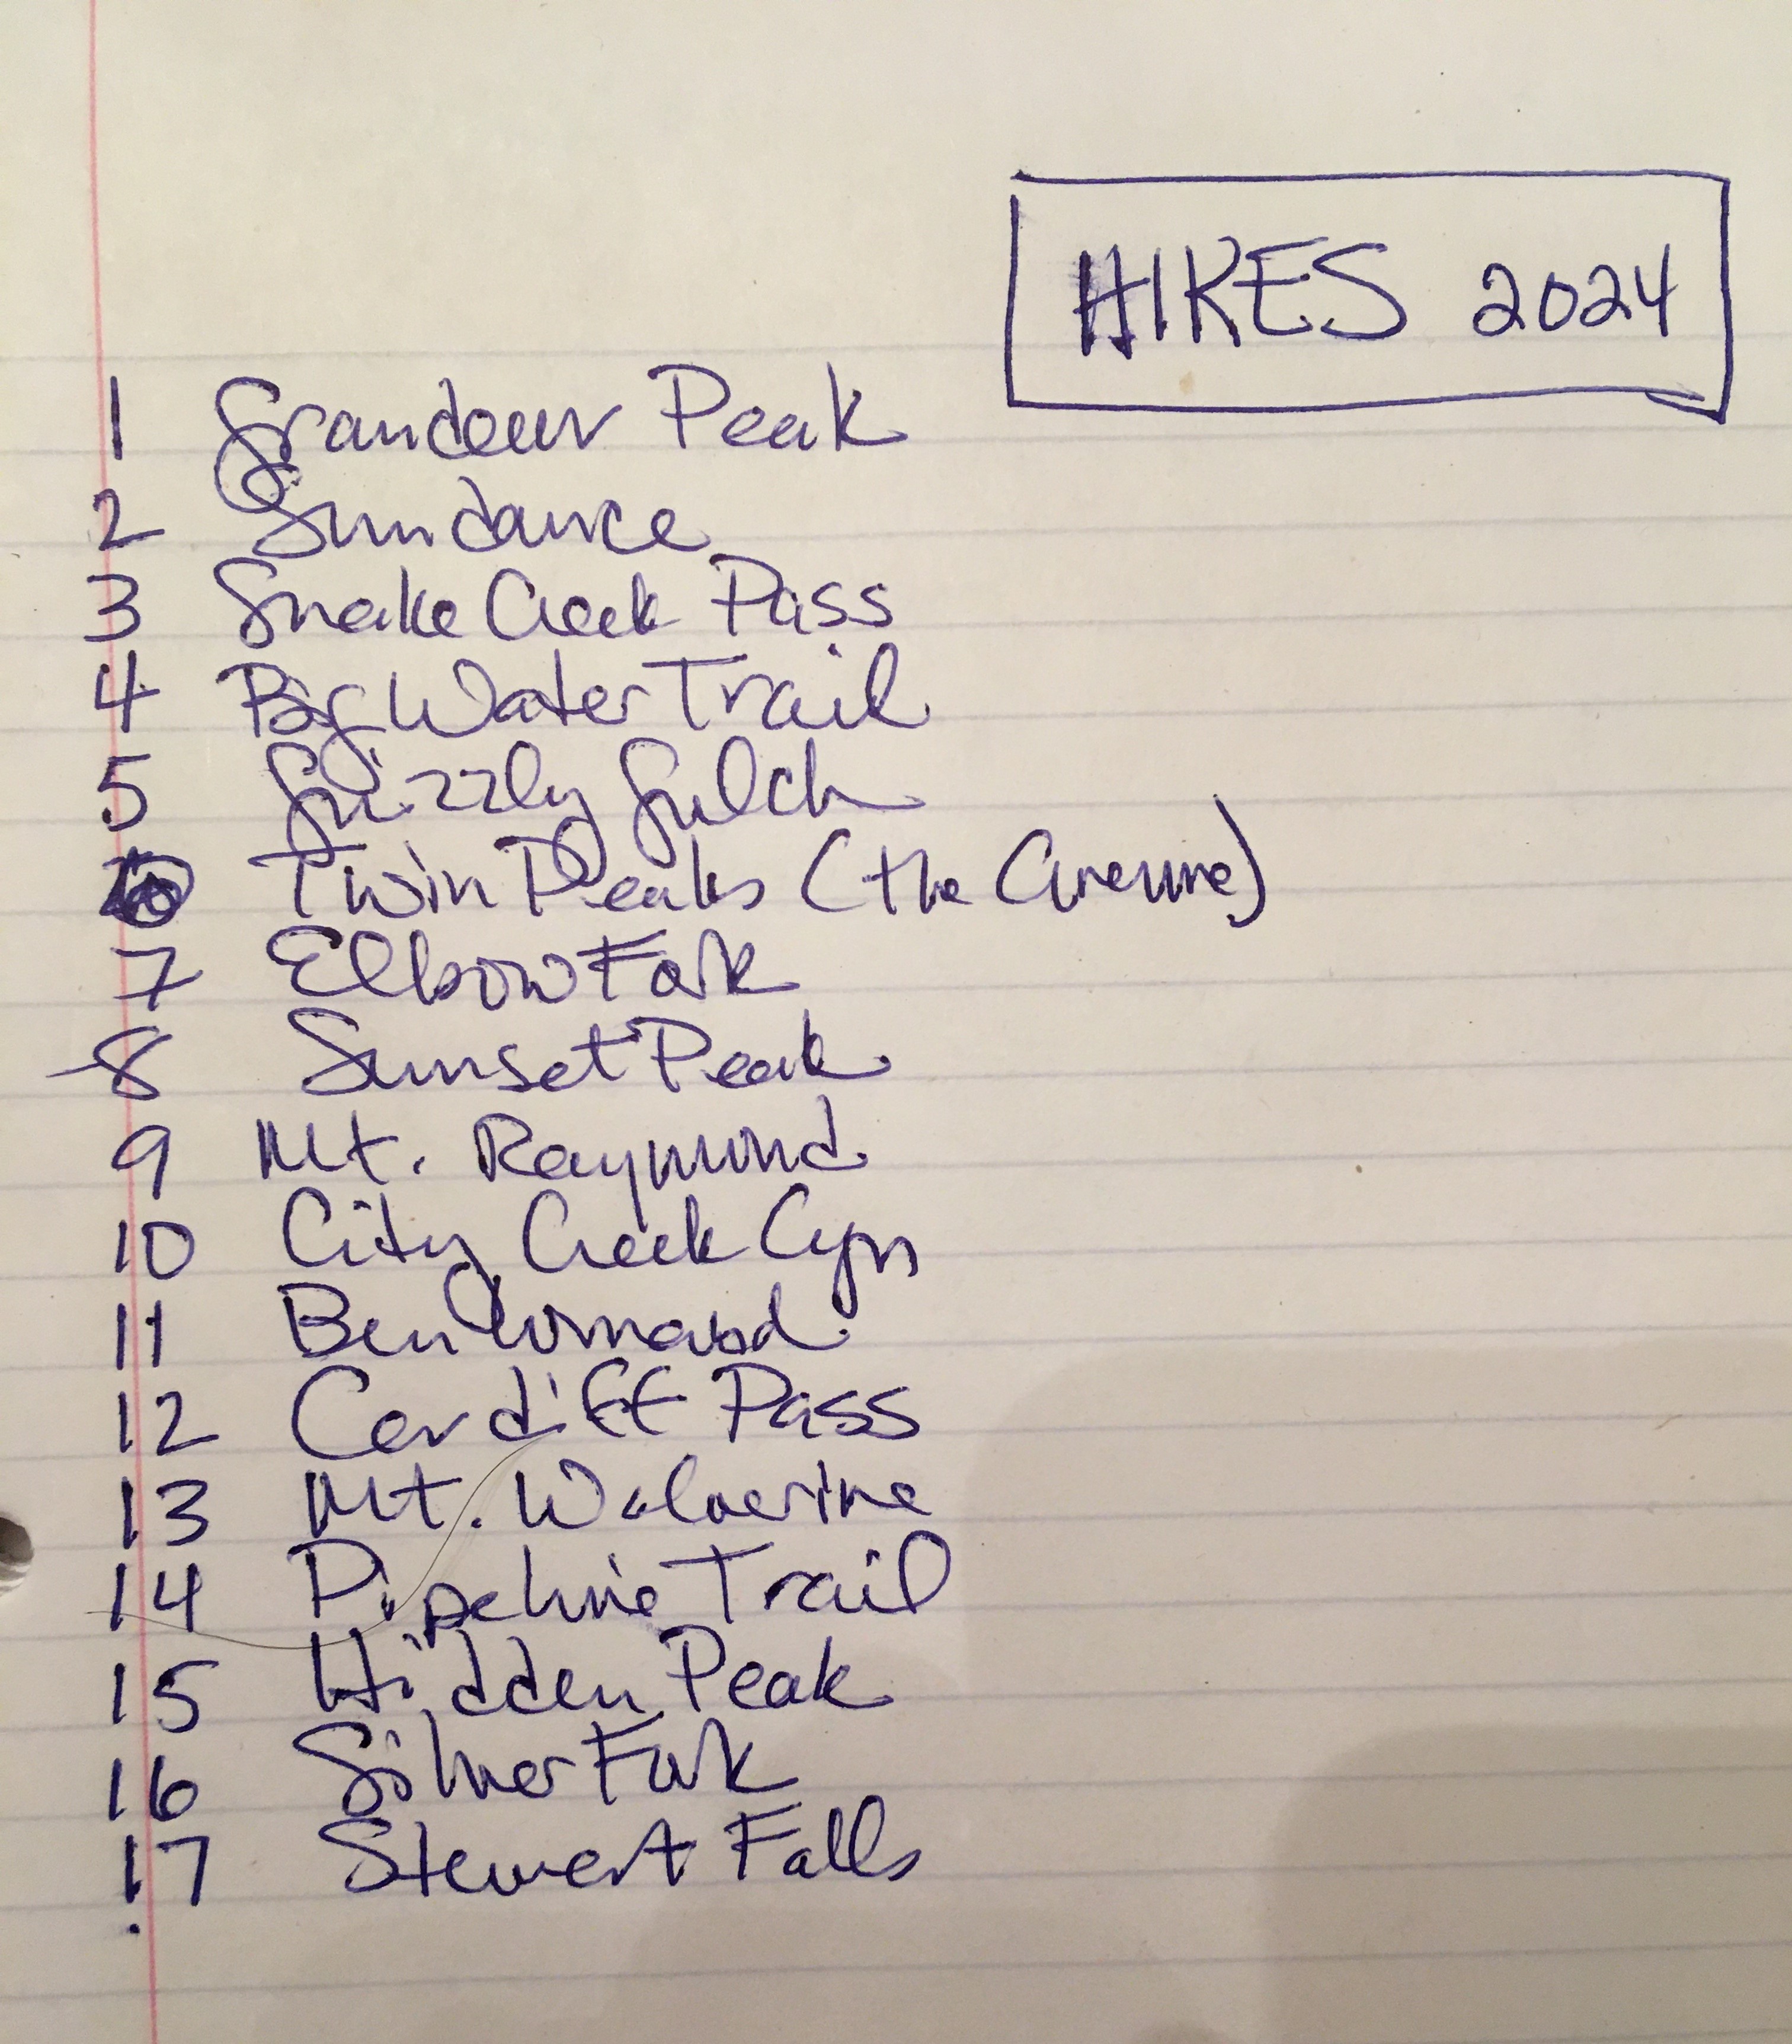 HIKES 2024
1 Grandeur Peak
2 Sundance
3 Snake Creek Pass
4 Big Water Trail
5 Grizzly Gulch
6 Twin Peaks (the Avenue)
7 Elbow Fork
8 Sunset Peak
9 Mt. Raymond
10 City Creek Cyn
11 Ben Lomond
12 Cardiff Pass
13 Mt. Wolverine
14 Pipeline Trail
15 Hidden Peak
16 Silver Fork
17 Stewart Falls